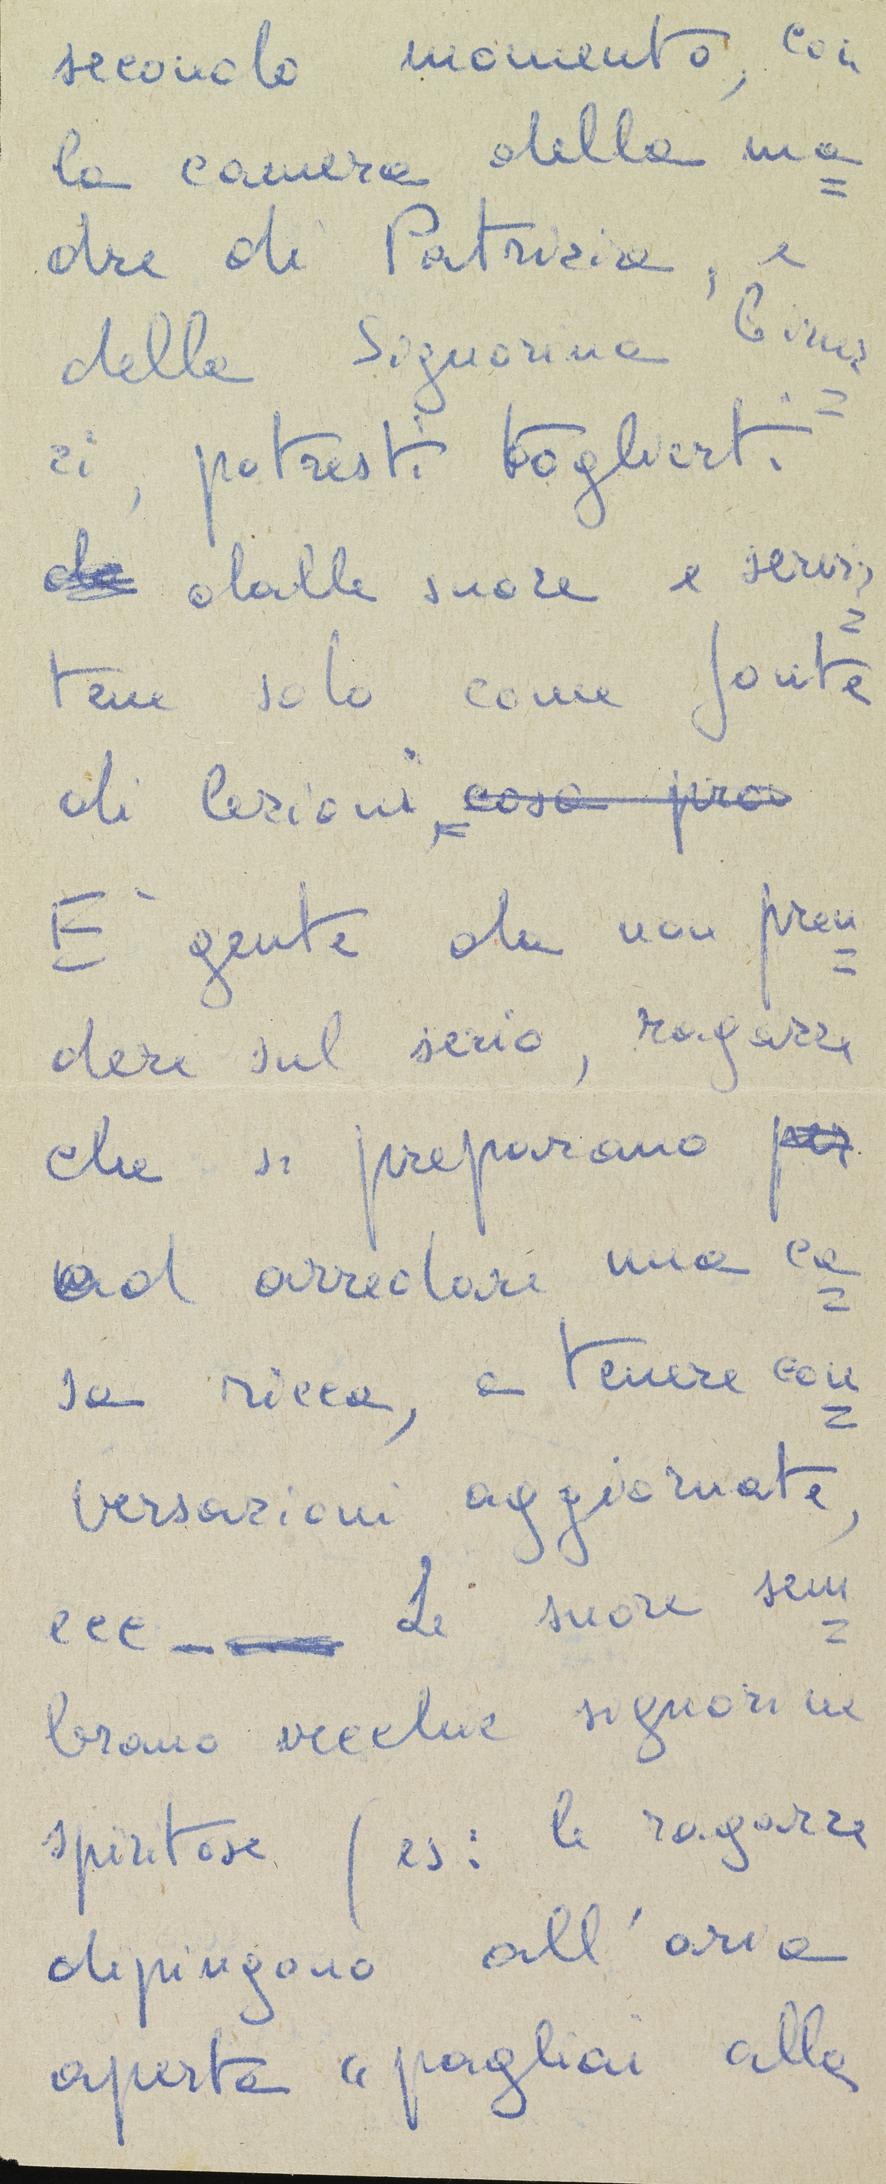 secondo momento, con
la camera della ma=
dre di Patrizia, e
della Signorina
zi, potresti toglierti
da dalle suore e servir=
tene solo come fonte
di lezioni, cosa pra
E` gente da non pren=
dere sul serio, ragazze
che si preparano per
ad arredare una ca=
sa ricca, a tenere con=
versazioni aggiornate,
ecc _ Le suore sem=
brano vecchie signorine
spiritose (es: le ragazze
dipingono all'aria
aperta "pagliai alla